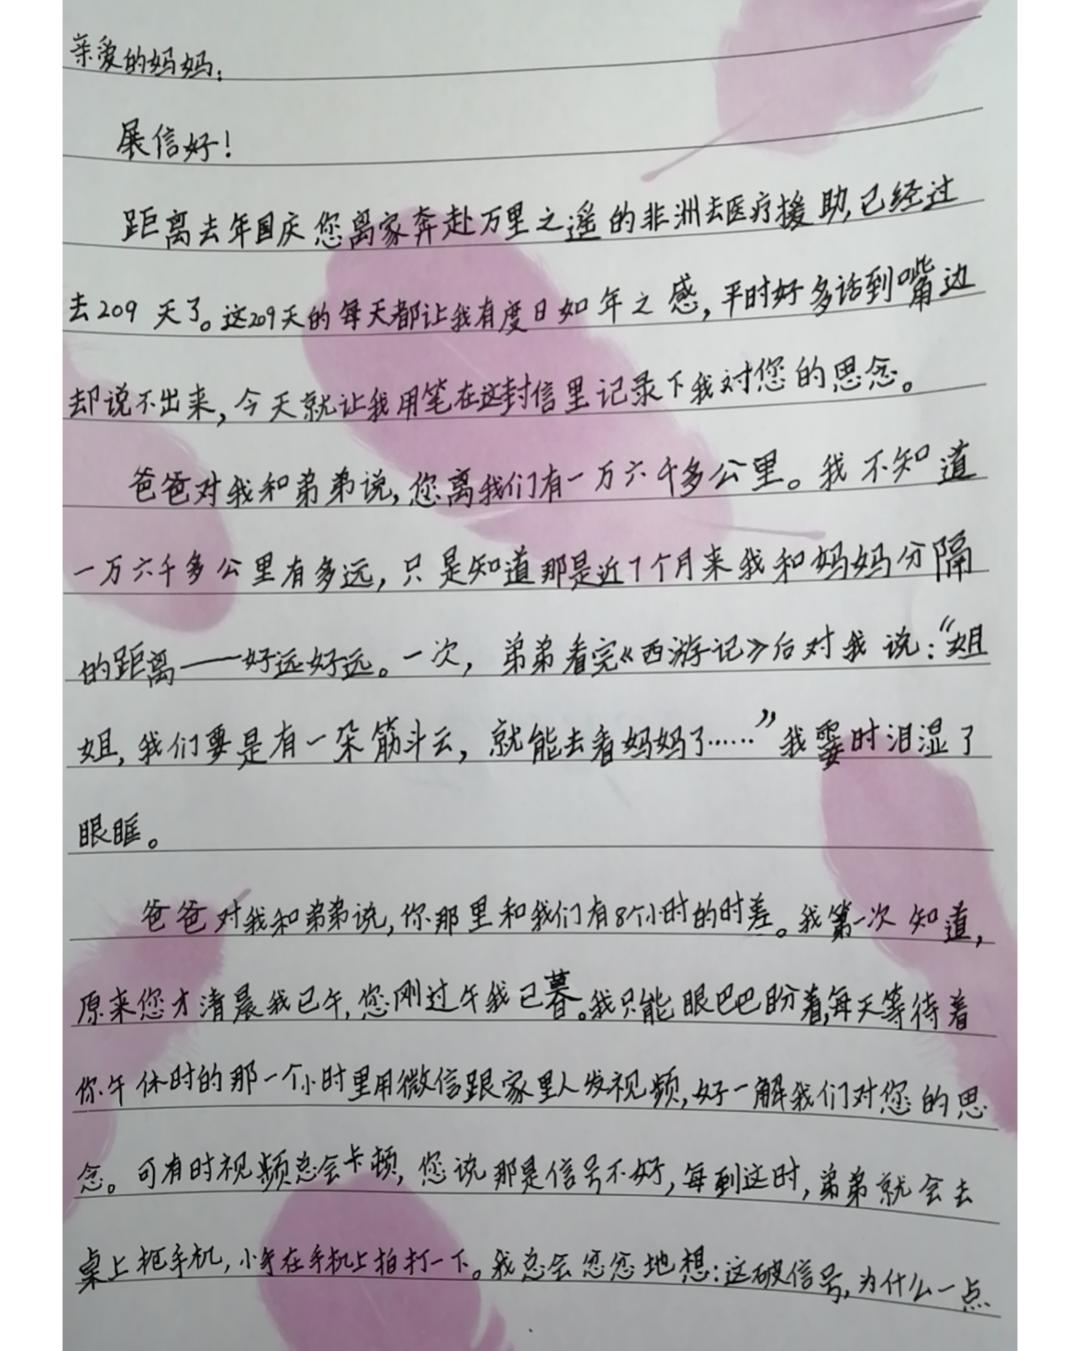 亲爱的妈妈:
展信好!
距离去年国庆您离家奔赴万里之遥的非洲去医疗援助,已经过
去209天了。这209天的每天都让我有度日如年之感,平时好多话到嘴边
却说不出来,今天就让我用笔在这封信里记录下我对您的思念。
爸爸对我和弟弟说,您离我们有一万六千多公里。我不知道
一万六千多公里有多远,只是知道那是近7个月来我和妈妈分隔
的距离——好远好远。一次,弟弟看完《西游记》后对我说:“姐
姐,我们要是有一朵筋斗云,就能去看妈妈了……”我霎时泪湿了
眼眶。
爸爸对我和弟弟说,你那里和我们有8个小时的时差。我第一次知道,
原来您才清晨我已午,您刚过午我已暮。我只能眼巴巴盼着,每天等待着
你午休时的那一个小时里用微信跟家里人发视频,好一解我们对您的思
念。可有时视频总会卡顿,您说那是信号不好,每到这时,弟弟就会去
桌上把手机,小手在手机上拍打一下。我总会忿忿地想:这破信号,为什么一点